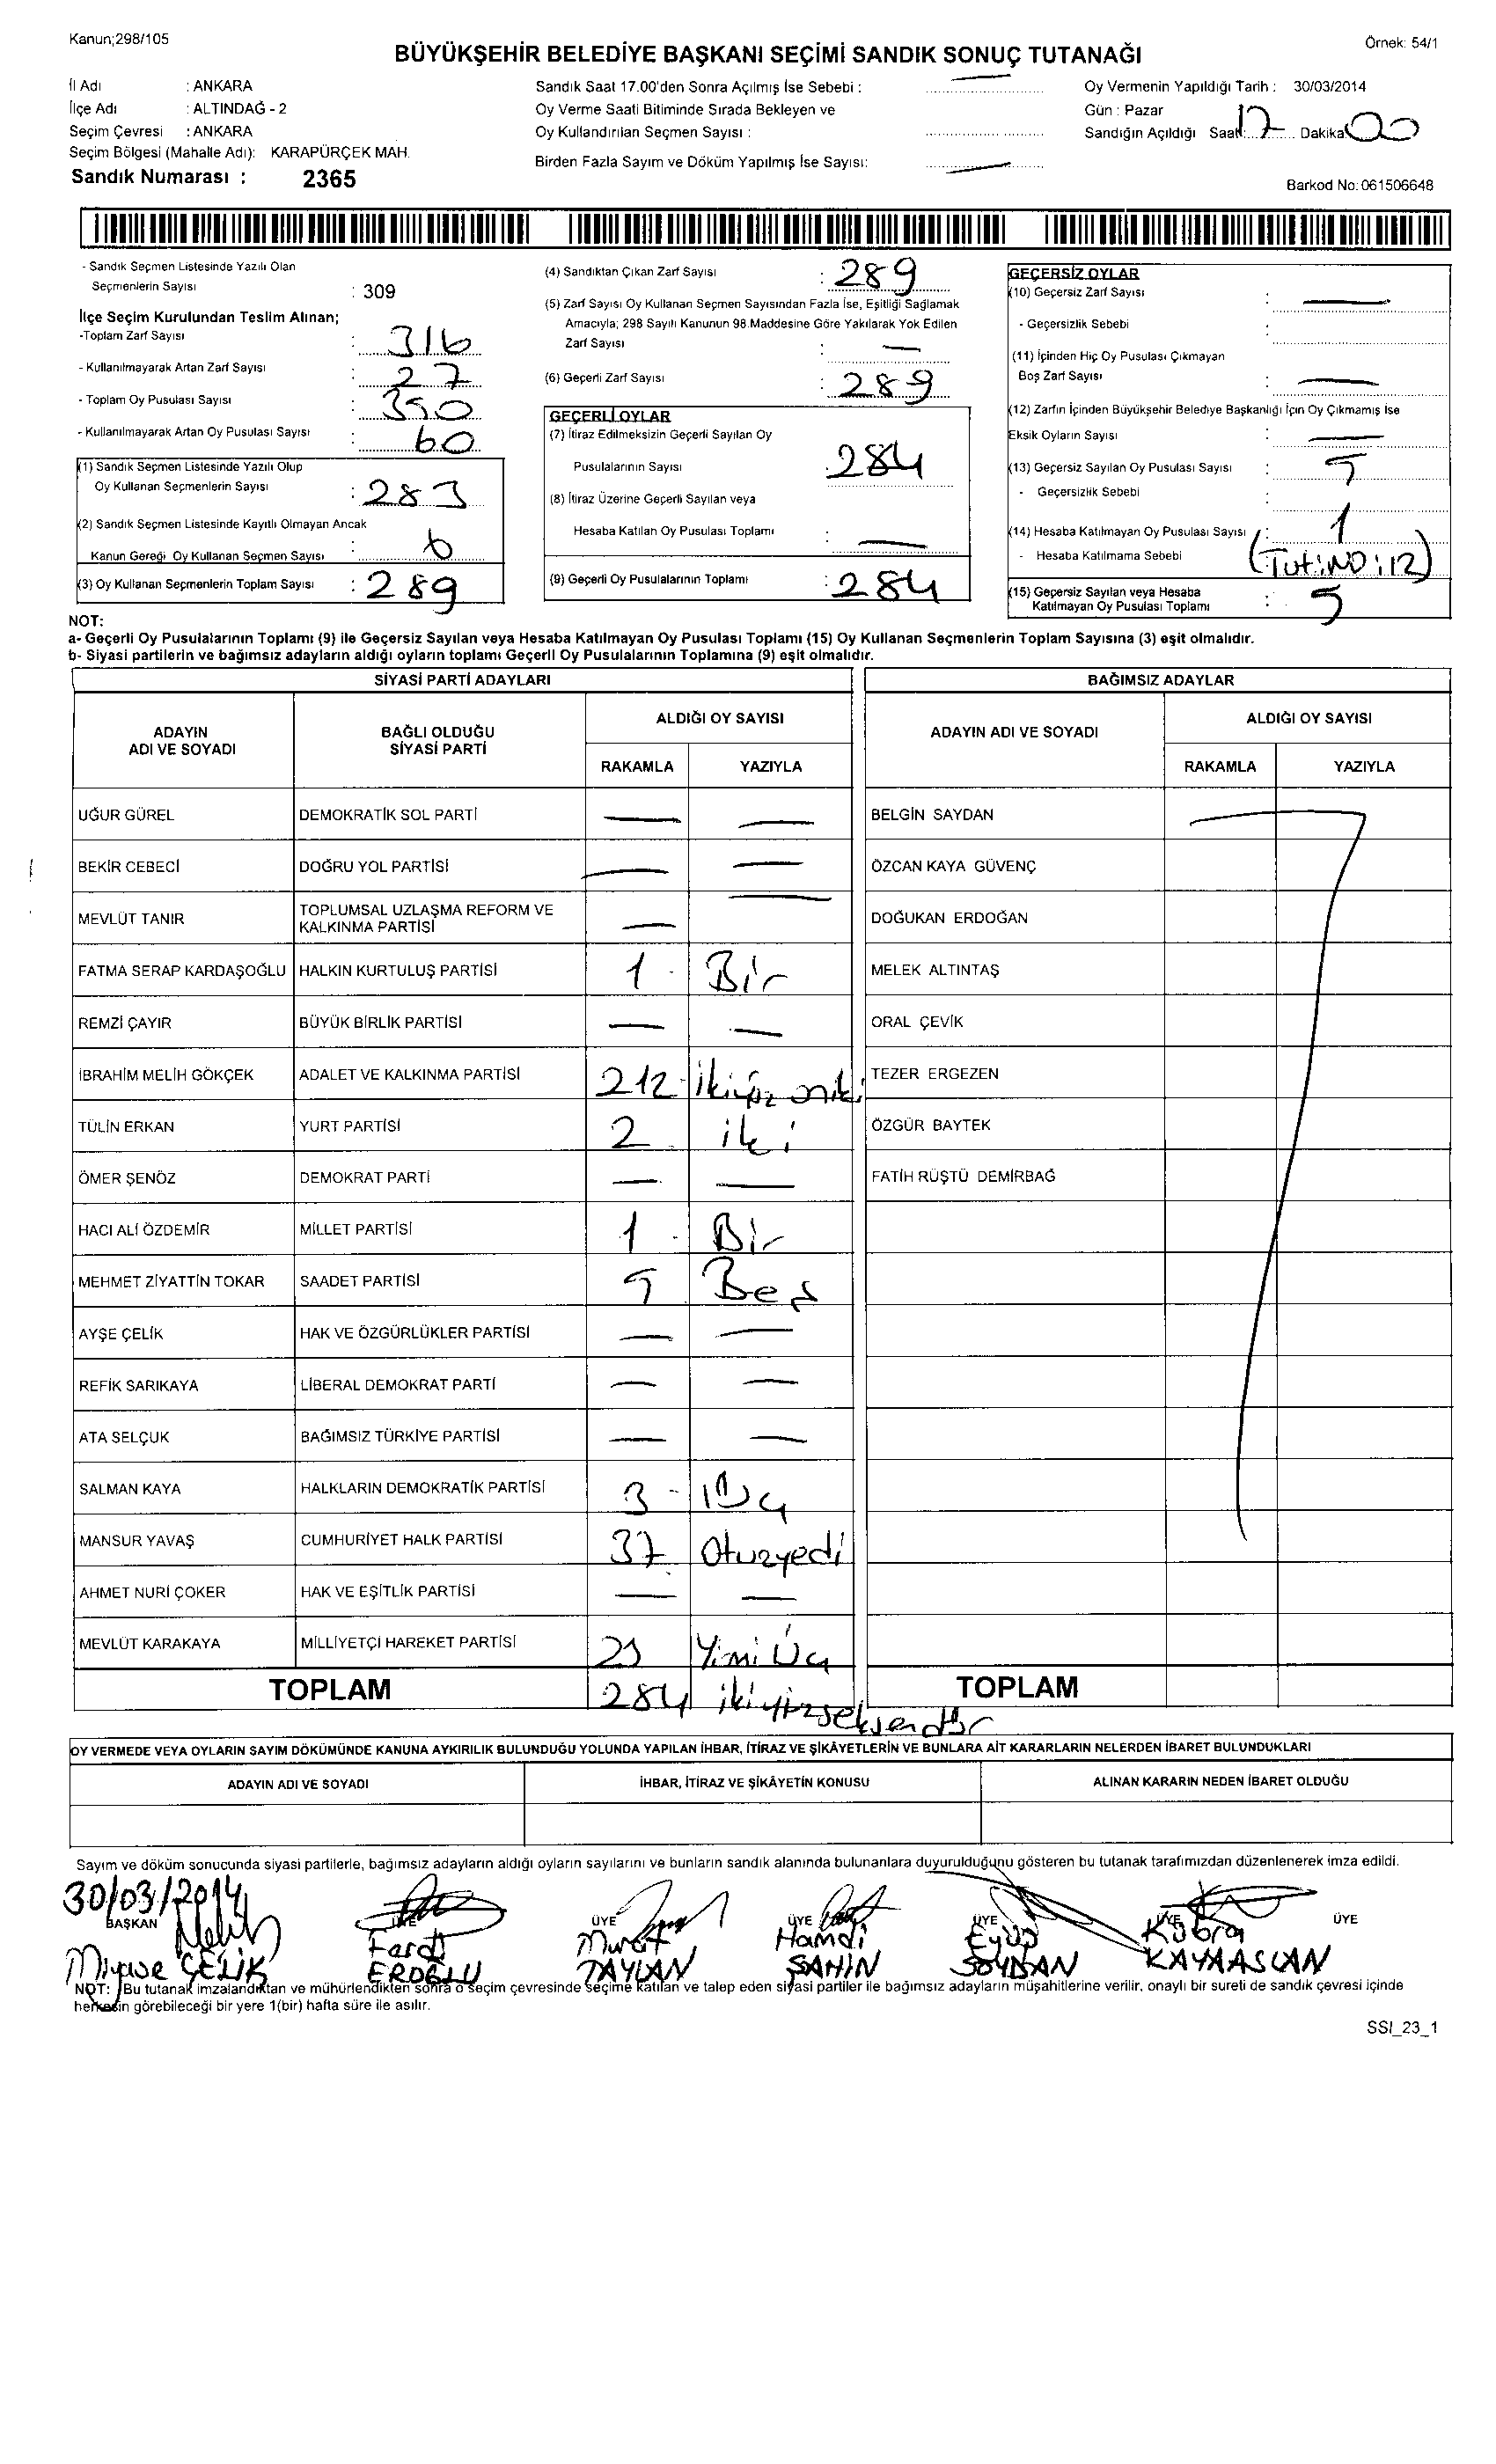 Kanun;298/105
Örnek: 54/1
BÜYÜKŞEHİR BELEDİYE BAŞKANI SEÇİMİ SANDIK SONUÇ TUTANAĞI
İl Adı : ANKARA
İlçe Adı : ALTINDAĞ - 2
Seçim Çevresi : ANKARA
Seçim Bölgesi (Mahalle Adı): KARAPÜRÇEK MAH.
Sandık Numarası : 2365
Sandık Saat 17.00'den Sonra Açılmış İse Sebebi : —
Oy Verme Saati Bitiminde Sırada Bekleyen ve
Oy Kullandırılan Seçmen Sayısı :
Birden Fazla Sayım ve Döküm Yapılmış İse Sayısı: —
Oy Vermenin Yapıldığı Tarih : 30/03/2014
Gün : Pazar
Sandığın Açıldığı Saat: 17 Dakika 00
Barkod No: 061506648
- Sandık Seçmen Listesinde Yazılı Olan
Seçmenlerin Sayısı : 309
İlçe Seçim Kurulundan Teslim Alınan;
-Toplam Zarf Sayısı : 316
- Kullanılmayarak Artan Zarf Sayısı : 27
- Toplam Oy Pusulası Sayısı : 350
- Kullanılmayarak Artan Oy Pusulası Sayısı : 60
(1) Sandık Seçmen Listesinde Yazılı Olup
Oy Kullanan Seçmenlerin Sayısı : 283
(2) Sandık Seçmen Listesinde Kayıtlı Olmayan Ancak
Kanun Gereği Oy Kullanan Seçmen Sayısı : 6
(3) Oy Kullanan Seçmenlerin Toplam Sayısı : 289
(4) Sandıktan Çıkan Zarf Sayısı : 289
(5) Zarf Sayısı Oy Kullanan Seçmen Sayısından Fazla İse, Eşitliği Sağlamak
Amacıyla; 298 Sayılı Kanunun 98.Maddesine Göre Yakılarak Yok Edilen
Zarf Sayısı : —
(6) Geçerli Zarf Sayısı : 289
GEÇERLİ OYLAR
(7) İtiraz Edilmeksizin Geçerli Sayılan Oy
Pusulalarının Sayısı : 284
(8) İtiraz Üzerine Geçerli Sayılan veya
Hesaba Katılan Oy Pusulası Toplamı : —
(9) Geçerli Oy Pusulalarının Toplamı : 284
GEÇERSİZ OYLAR
(10) Geçersiz Zarf Sayısı : —
- Geçersizlik Sebebi :
(11) İçinden Hiç Oy Pusulası Çıkmayan
Boş Zarf Sayısı : —
(12) Zarfın İçinden Büyükşehir Belediye Başkanlığı İçin Oy Çıkmamış İse
Eksik Oyların Sayısı : —
(13) Geçersiz Sayılan Oy Pusulası Sayısı : 5
- Geçersizlik Sebebi :
(14) Hesaba Katılmayan Oy Pusulası Sayısı : 1
- Hesaba Katılmama Sebebi (Tut:NO:12)
(15) Geçersiz Sayılan veya Hesaba
Katılmayan Oy Pusulası Toplamı : 5
NOT:
a- Geçerli Oy Pusulalarının Toplamı (9) ile Geçersiz Sayılan veya Hesaba Katılmayan Oy Pusulası Toplamı (15) Oy Kullanan Seçmenlerin Toplam Sayısına (3) eşit olmalıdır.
b- Siyasi partilerin ve bağımsız adayların aldığı oyların toplamı Geçerli Oy Pusulalarının Toplamına (9) eşit olmalıdır.
SİYASİ PARTİ ADAYLARI
ADAYIN ADI VE SOYADI BAĞLI OLDUĞU SİYASİ PARTİ ALDIĞI OY SAYISI
RAKAMLA YAZIYLA
UĞUR GÜREL DEMOKRATİK SOL PARTİ — —
BEKİR CEBECİ DOĞRU YOL PARTİSİ — —
MEVLÜT TANIR TOPLUMSAL UZLAŞMA REFORM VE KALKINMA PARTİSİ — —
FATMA SERAP KARDAŞOĞLU HALKIN KURTULUŞ PARTİSİ 1 - Bir
REMZİ ÇAYIR BÜYÜK BİRLİK PARTİSİ — —
İBRAHİM MELİH GÖKÇEK ADALET VE KALKINMA PARTİSİ 212 - ikiyüz oniki
TÜLİN ERKAN YURT PARTİSİ 2 iki
ÖMER ŞENÖZ DEMOKRAT PARTİ — —
HACI ALİ ÖZDEMİR MİLLET PARTİSİ 1 - Bir
MEHMET ZİYATTİN TOKAR SAADET PARTİSİ 5 Beş
AYŞE ÇELİK HAK VE ÖZGÜRLÜKLER PARTİSİ — —
REFİK SARIKAYA LİBERAL DEMOKRAT PARTİ — —
ATA SELÇUK BAĞIMSIZ TÜRKİYE PARTİSİ — —
SALMAN KAYA HALKLARIN DEMOKRATİK PARTİSİ 3 - Üç
MANSUR YAVAŞ CUMHURİYET HALK PARTİSİ 37 Otuzyedi
AHMET NURİ ÇOKER HAK VE EŞİTLİK PARTİSİ — —
MEVLÜT KARAKAYA MİLLİYETÇİ HAREKET PARTİSİ 23 Yimi Üç
TOPLAM 284 ikiyüzseksendör
BAĞIMSIZ ADAYLAR
ADAYIN ADI VE SOYADI ALDIĞI OY SAYISI
RAKAMLA YAZIYLA
BELGİN SAYDAN
ÖZCAN KAYA GÜVENÇ
DOĞUKAN ERDOĞAN
MELEK ALTINTAŞ
ORAL ÇEVİK
TEZER ERGEZEN
ÖZGÜR BAYTEK
FATİH RÜŞTÜ DEMİRBAĞ
TOPLAM
OY VERMEDE VEYA OYLARIN SAYIM DÖKÜMÜNDE KANUNA AYKIRILIK BULUNDUĞU YOLUNDA YAPILAN İHBAR, İTİRAZ VE ŞİKÂYETLERİN VE BUNLARA AİT KARARLARIN NELERDEN İBARET BULUNDUKLARI
ADAYIN ADI VE SOYADI İHBAR, İTİRAZ VE ŞİKÂYETİN KONUSU ALINAN KARARIN NEDEN İBARET OLDUĞU
Sayım ve döküm sonucunda siyasi partilerle, bağımsız adayların aldığı oyların sayılarını ve bunların sandık alanında bulunanlara duyurulduğunu gösteren bu tutanak tarafımızdan düzenlenerek imza edildi.
30/03/2014
BAŞKAN ÜYE ÜYE ÜYE ÜYE ÜYE ÜYE
ÇELİK
ERDĞLU
Murat TAYLAN
Hamdi ŞAHİN
Eyüp SOYDAN
Kübra KAYAASLAN
NOT: Bu tutanak imzalandıktan ve mühürlendikten sonra o seçim çevresinde seçime katılan ve talep eden siyasi partiler ile bağımsız adayların müşahitlerine verilir, onaylı bir sureti de sandık çevresi içinde
herkesin görebileceği bir yere 1(bir) hafta süre ile asılır.
SSI_23_1